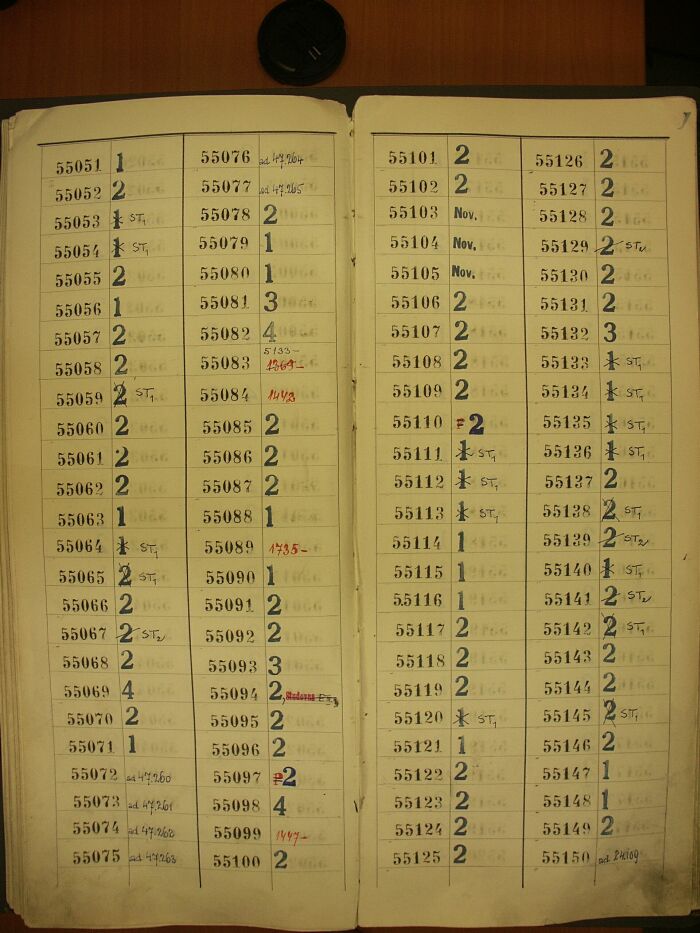 55051 1
55052 2
55053 1 ST1
55054 1 ST1
55055 2
55056 1
55057 2
55058 2
55059 2 ST1
55060 2
55061 2
55062 2
55063 1
55064 1 ST1
55065 2 ST1
55066 2
55067 2 ST2
55068 2
55069 4
55070 2
55071 1
55072 ad 47.260
55073 ad 47.261
55074 ad 47.262
55075 ad 47.263
55076 ad 47.264
55077 ad 47.265
55078 2
55079 1
55080 1
55081 3
55082 4
5133-
55083 1369-
55084 1442
55085 2
55086 2
55087 2
55088 1
55089 1735-
55090 1
55091 2
55092 2
55093 3
55094 2, Studovna
55095 2
55096 2
55097 P 2
55098 4
55099 1447-
55100 2
55101 2
55102 2
55103 Nov.
55104 Nov.
55105 Nov.
55106 2
55107 2
55108 2
55109 2
55110 P 2
55111 1 ST1
55112 1 ST1
55113 1 ST1
55114 1
55115 1
55116 1
55117 2
55118 2
55119 2
55120 1 ST1
55121 1
55122 2
55123 2
55124 2
55125 2
55126 2
55127 2
55128 2
55129 2 ST2
55130 2
55131 2
55132 3
55133 1 ST1
55134 1 ST1
55135 1 ST1
55136 1 ST1
55137 2
55138 2 ST1
55139 2 ST2
55140 1 ST1
55141 2 ST2
55142 2 ST1
55143 2
55144 2
55145 2 ST1
55146 2
55147 1
55148 1
55149 2
55150 ad 24109